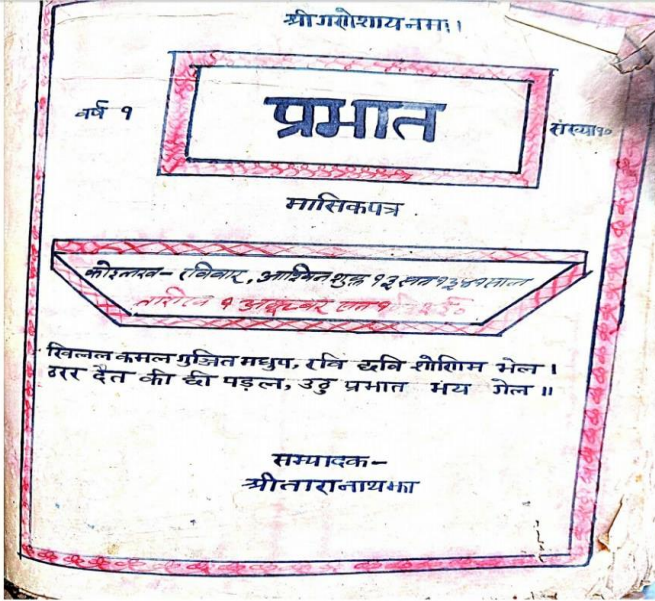 श्रीगणेशाय नमः।
वर्ष १
प्रभात
संख्या १०
मासिकपत्र
कोइलख - रविवार, आश्विन शुक्ल १३ सन १३४१ साल
तारीख १ अक्टूबर सन १९३३ ई०
खिलल कमल गुञ्जित मधुप, रवि छवि शोणिम भेल।
ठरर दैत की छी पड़ल, उठु प्रभात भय गेल॥
सम्पादक -
श्रीतारानाथझा